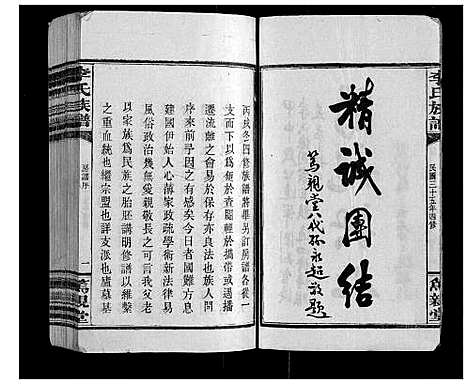 李氏族譜
民國三十五年四修
篤親堂
精誠團結
篤親堂八代孫永超敬題
丙戌冬四修族譜將畢另訂房譜各從一
支而下以為便於查閱輕於攜帶或遇播
遷流離之會易於保存亦良法也族人問
序於予予有感矣今日者國難方息
建國伊始人心薄家政疏學術新法律易
風俗政治幾無愛親敬長之可言我父老
以家族為民族之胎胚講明修譜以維繫
之重血統也繼宗盟也詳支派也廬墓基
李氏族譜
房譜序
一
篤親堂